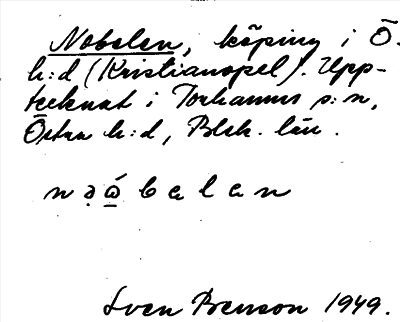 Nobelen, köping i Ö.
h:d (Kristianopel). Upp-
tecknat i Torhamns s:n,
Östra h:d, Blek. län.
nəώbelen
Sven Benson 1949.